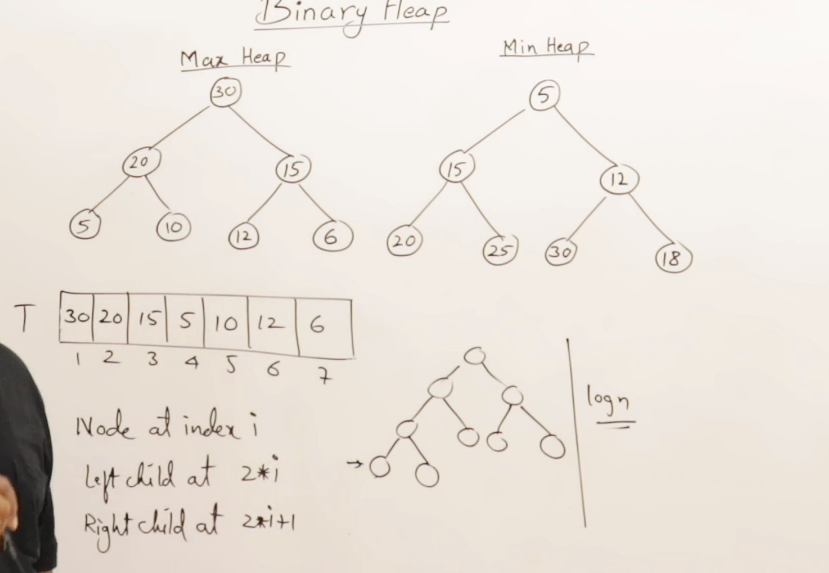 Binary Heap
Max Heap
30
20 15
5 10 12 6
Min Heap
5
15 12
20 25 30 18
T 30 20 15 5 10 12 6
1 2 3 4 5 6 7
Node at index i
Left child at 2*i
Right child at 2*i+1
→
logn